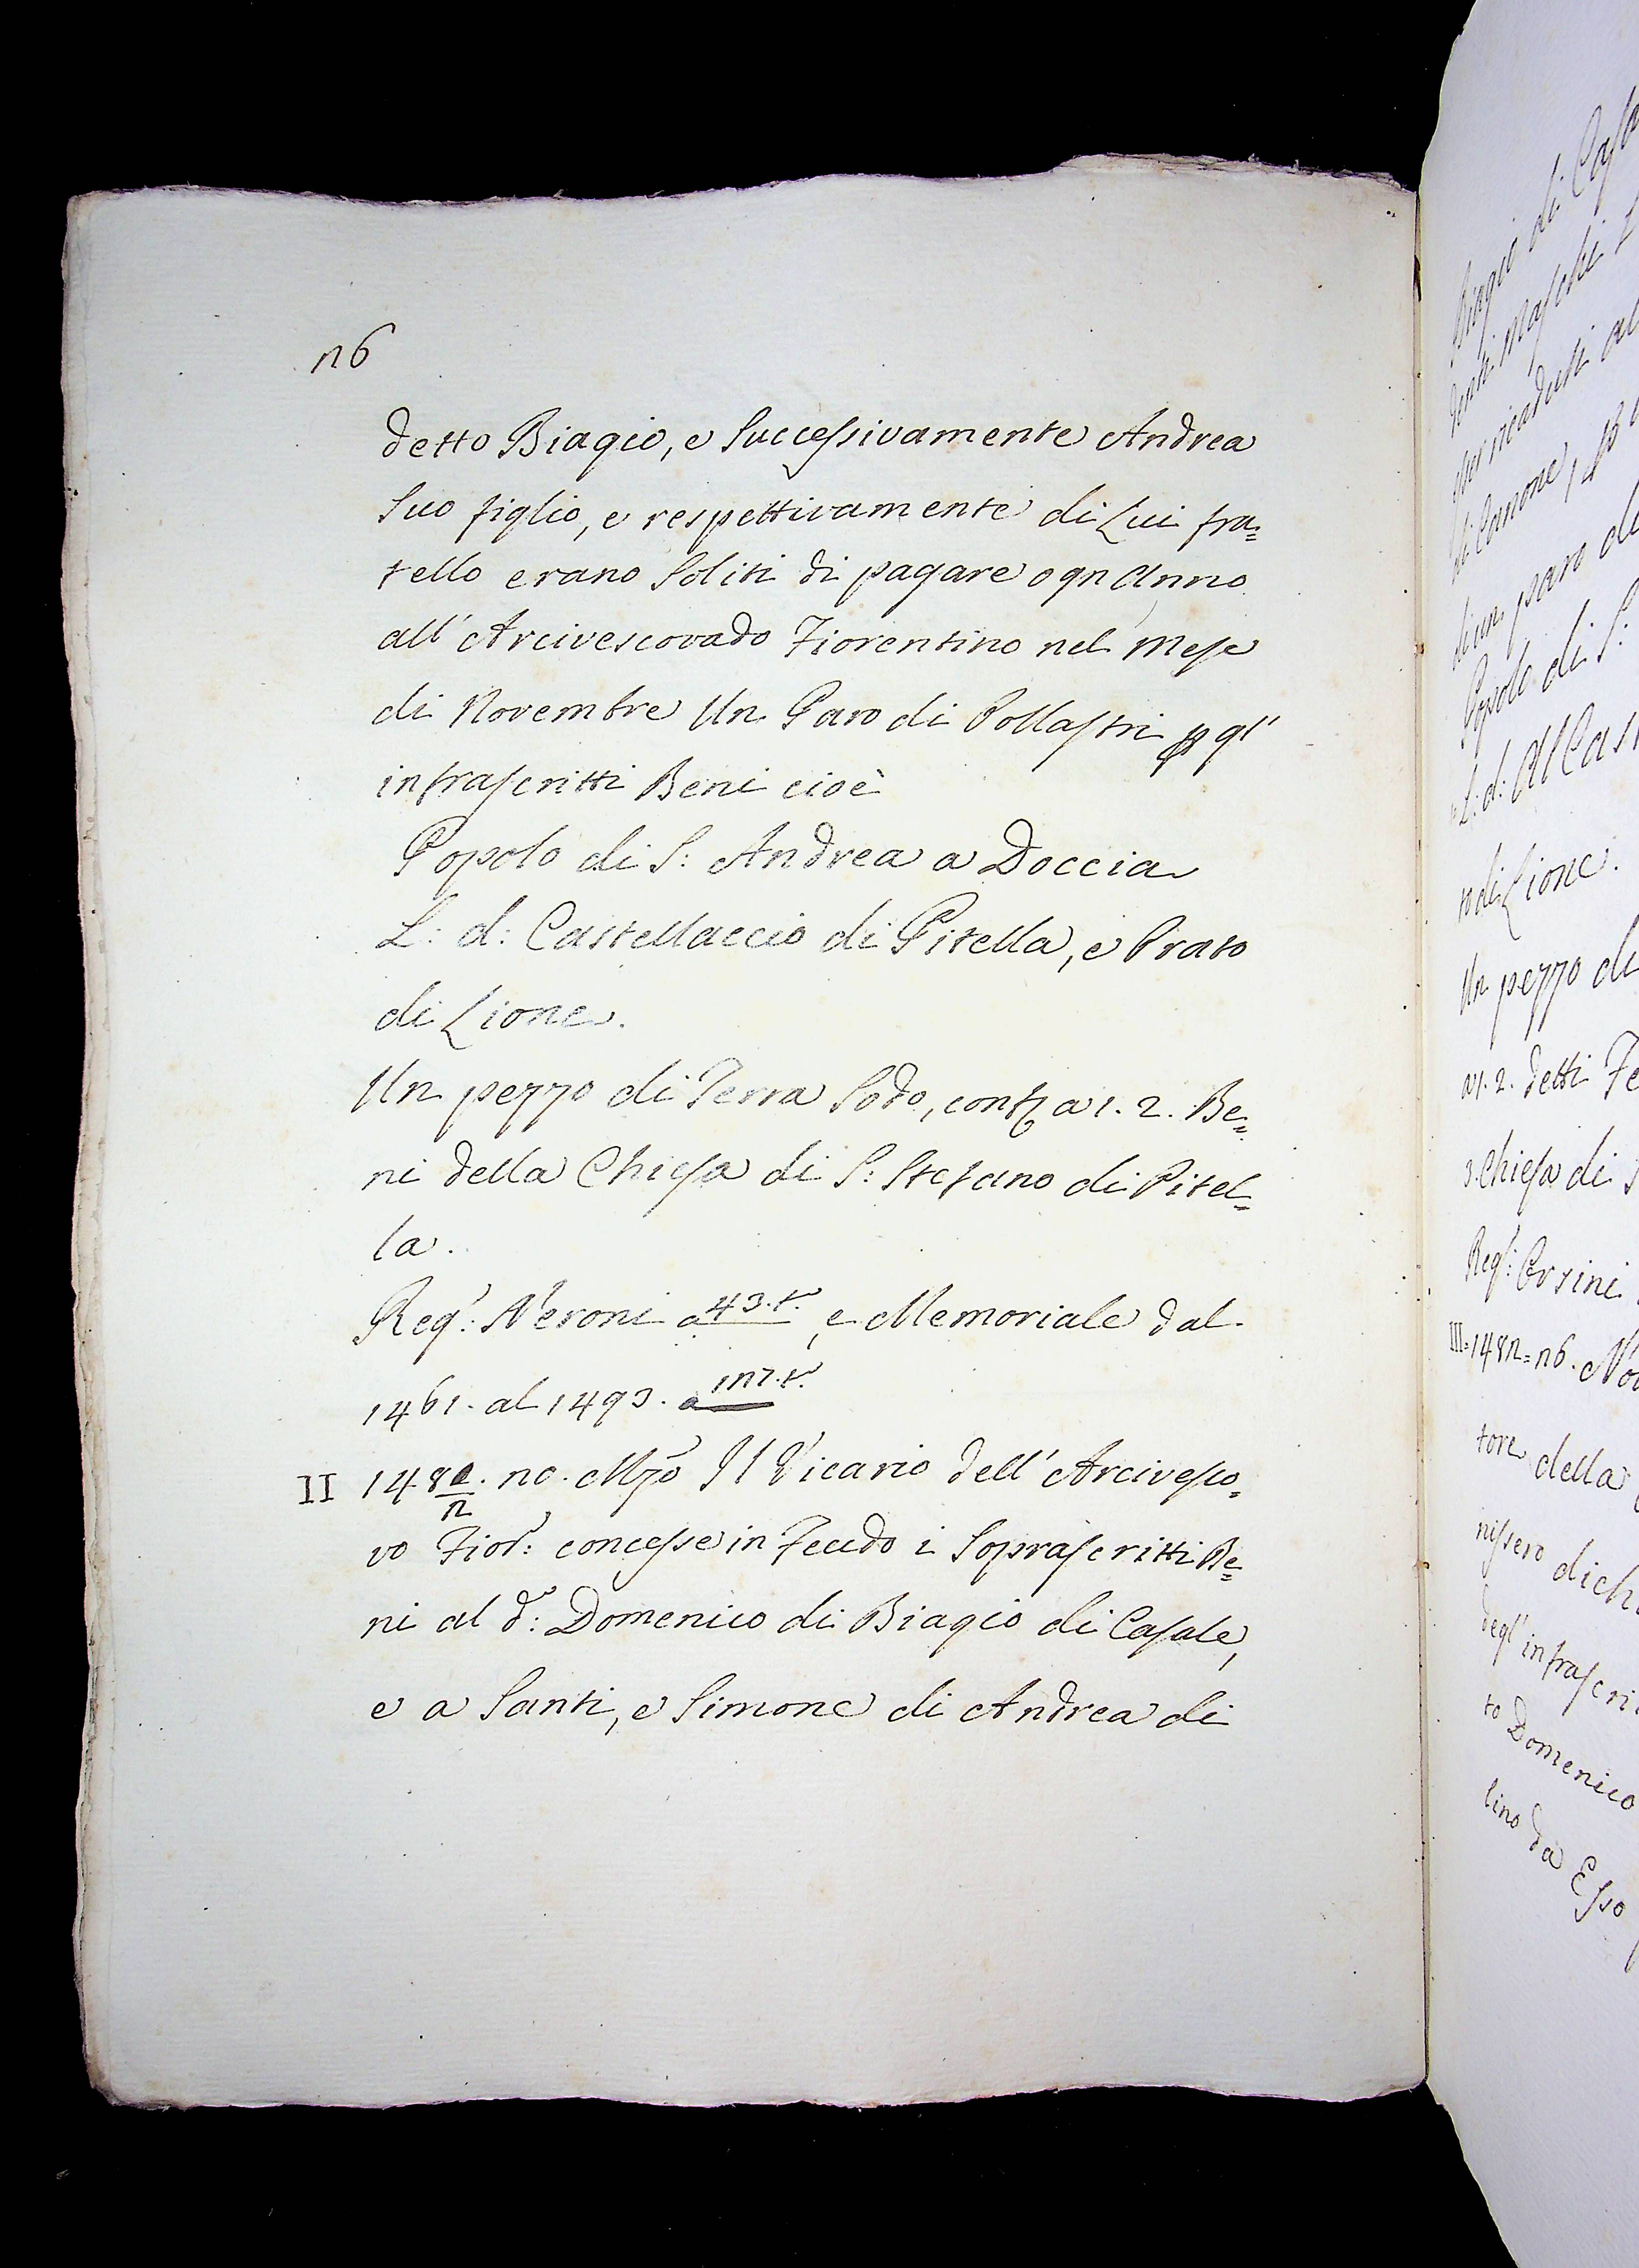 26
detto Biagio, e Successivamente Andrea
Suo figlio, e respettivamente di Lui fra=
tello erano Soliti di pagare ogn Anno
all' Arcivescovado Fiorentino nel Mese
di Novembre Un Paro di Pollastri p gl'
infrascritti Beni cioè
Popolo di S: Andrea a Doccia
L: d: Castellaccio di Pitella, e Prato
di Lione.
Un pezzo di Terra Sodo, conf a 1. 2. Be=
ni della Chiesa di S: Stefano di Pitel=
la.
Reg: Neroni a 43. t. , e Memoriale dal
1461. al 1493. a 127. t.
II 1481/2. 20. Mzo Il Vicario dell' Arcivesco=
vo Fior: concesse in Feudo i Soprascritti Be=
ni al d: Domenico di Biagio di Casale,
e a Santi, e Simone di Andrea di
Biagio di
Maschi
di Canone,
di un paro di
Popolo di S:
L: d: Al
to di Lione.
Un pezzo di
a 1. 2. detti
3. Chiesa di
Reg: Orsini
III=1482=26.
tore della
nissero
degl'
to Domenico
lino da Esso